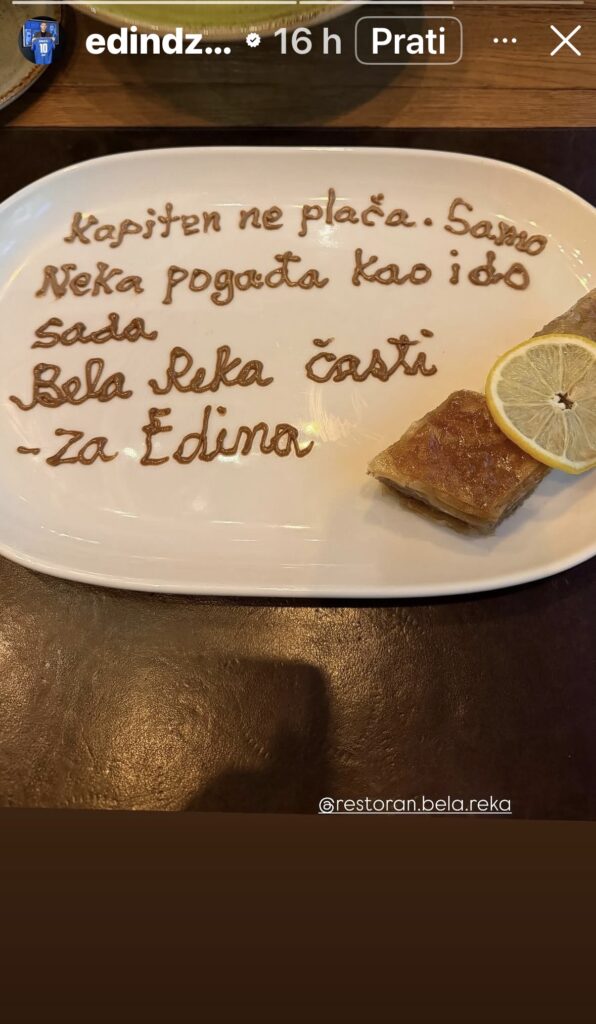 edindz... 16 h Prati ...
Kapiten ne plača. Samo
Neka pogađa kao i do
sada
Bela Reka časti
- Za Edina
@restoran.bela.reka